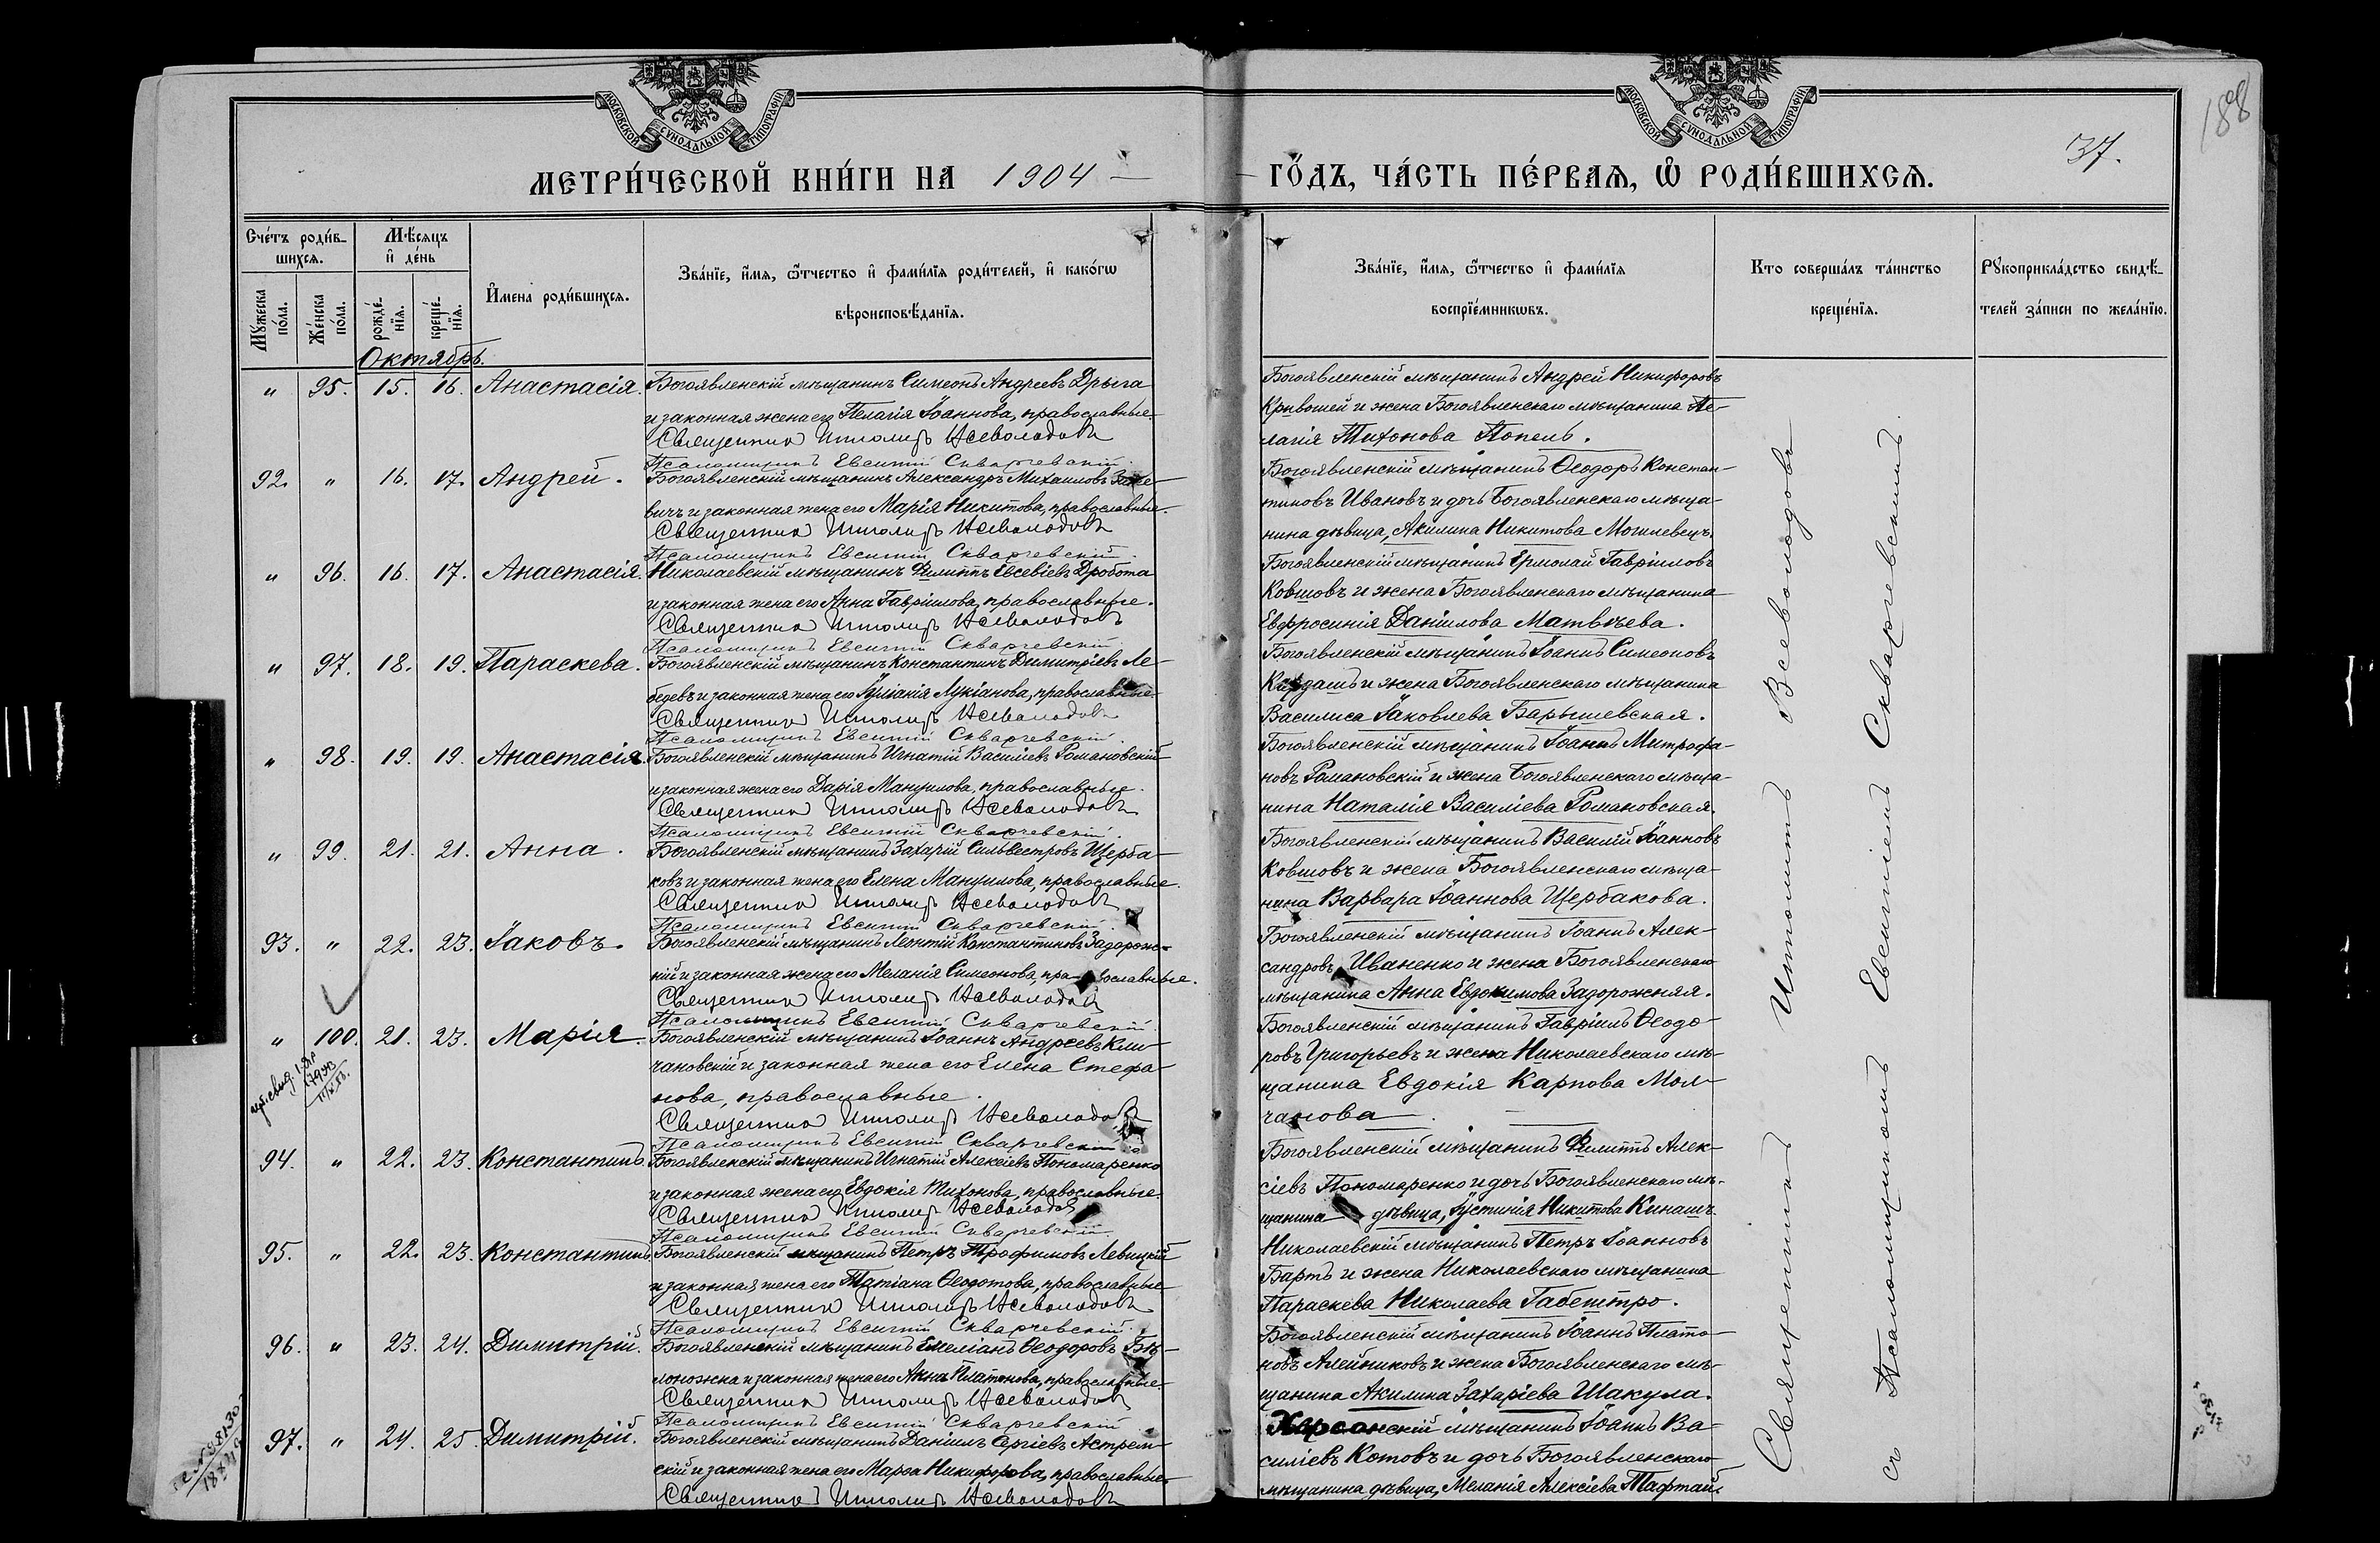 188
37.
МОСКОВСКОЙ СѴНОДАЛЬНОЙ ТИПОГРАФІИ
МОСКОВСКОЙ СѴНОДАЛЬНОЙ ТИПОГРАФІИ
МЕТРИ́ЧЕСКОЙ КНИ́ГИ НА 1904
ГО́ДЪ, ЧА́СТЬ ПЕ́РВАѦ, Ѡ҆ РОДИ́ВШИХСѦ.
Сче́тъ роди́в-
шихсѧ.
Мꙋ́жеска по́ла.
Же́нска по́ла.
Мѣ́сѧцъ
и҆ де́нь
рожде́-
нїѧ.
креще́-
нїѧ.
И҆мена роди́вшихсѧ.
Зва́нїе, и҆́мѧ, ѻ҆́тчество и҆ фами́лїѧ роди́телей, и҆ како́гѡ
вѣроисповѣ́данїѧ.
Зва́нїе, и҆́мѧ, ѻ҆́тчество и҆ фами́лїѧ
воспрїе́мникѡвъ.
Кто соверша́лъ та́инство
креще́нїѧ.
Рꙋкоприкла́дство свидѣ́-
телей за́писи по жела́нїю.
Октябрь.
" 95. 15. 16. Анастасія. Богоявленскій мѣщанинъ Симеонъ Андреевъ Дрыга
и законная жена его Пелагія Іоаннова, православные.
Священникъ Ипполитъ Всеволодовъ
Псаломщикъ Евсигній Скваргевскій.
Богоявленскій мѣщанинъ Андрей Никифоровъ
Кривошей и жена Богоявленскаго мѣщанина Пе-
лагія Тихонова Попель.
92. " 16. 17. Андрей. Богоявленскій мѣщанинъ Александръ Михаиловъ
вичъ и законная жена его Марія Никитова, православные.
Священникъ Ипполитъ Всеволодовъ
Псаломщикъ Евсигній Скваргевскій.
Богоявленскій мѣщанинъ Ѳеодоръ Констан-
тиновъ Ивановъ и дочь Богоявленскаго мѣща-
нина дѣвица, Акилина Никитова Могилевецъ.
" 96. 16. 17. Анастасія. Николаевскій мѣщанинъ Филиппъ Евсевіевъ Дробота
и законная жена его Анна Гавріилова, православные.
Священникъ Ипполитъ Всеволодовъ
Псаломщикъ Евсигній Скваргевскій
Богоявленскій мѣщанинъ Ермолай Гавріиловъ
Ковшовъ и жена Богоявленскаго мѣщанина
Евфросинія Даніилова Матвѣева.
" 97. 18. 19. Параскева. Богоявленскій мѣщанинъ Константинъ Димитріевъ Ле-
бедевъ и законная жена его Іуліанія Лукіанова, православные.
Священникъ Ипполитъ Всеволодовъ
Псаломщикъ Евсигній Скваргевскій.
Богоявленскій мѣщанинъ Іоаннъ Симеоновъ
и жена Богоявленскаго мѣщанина
Василиса Іаковлева Барышевская.
" 98. 19. 19. Анастасія. Богоявленскій мѣщанинъ Игнатій Василіевъ Романовскій
и законная жена его Дарія Мануилова, православные.
Священникъ Ипполитъ Всеволодовъ
Псаломщикъ Евсигній Скваргевскій.
Богоявленскій мѣщанинъ Іоаннъ Митрофа-
новъ Романовскій и жена Богоявленскаго мѣща-
нина Наталія Василіева Романовская.
" 99. 21. 21. Анна. Богоявленскій мѣщанинъ Захарій Сильвестровъ Щерба-
ковъ и законная жена его Елена Мануилова, православные.
Священникъ Ипполитъ Всеволодовъ
Псаломщикъ Евсигній Скваргевскій.
Богоявленскій мѣщанинъ Василій Іоанновъ
Ковшовъ и жена Богоявленскаго мѣща-
нина Варвара Іоаннова Щербакова.
93. " 22. 23. Іаковъ. Богоявленскій мѣщанинъ Леонтій Константиновъ Задорож-
ній и законная жена его Меланія Симеонова, православные.
Священникъ Ипполитъ Всеволодовъ
Псаломщикъ Евсигній Скваргевскій
Богоявленскій мѣщанинъ Іоаннъ Алек-
сандровъ Иваненко и жена Богоявленскаго
мѣщанина Анна Евдокимова Задорожняя.
" 100. 21. 23. Марія. Богоявленскій мѣщанинъ Іоаннъ Андреевъ Кли-
чановскій и законная жена его Елена Стефа-
нова, православные.
Священникъ Ипполитъ Всеволодовъ
Псаломщикъ Евсигній Скваргевскій
Богоявленскій мѣщанинъ Гавріилъ Ѳеодо-
ровъ Григорьевъ и жена Николаевскаго мѣ-
щанина Евдокія Карпова Мол-
чанова.
94. " 22. 23. Константинъ. Богоявленскій мѣщанинъ Игнатій Алексіевъ Пономаренко
и законная жена его Евдокія Тихонова, православные.
Священникъ Ипполитъ Всеволодовъ
Псаломщикъ Евсигній Скваргевскій
Богоявленскій мѣщанинъ Филиппъ Алек-
сіевъ Пономаренко и дочь Богоявленскаго мѣ-
щанина дѣвица, Іустинія Никитова Кинашъ.
95. " 22. 23. Константинъ. Богоявленскій мѣщанинъ Петръ Трофимовъ Левицкій
и законная жена его Татіана Ѳеодотова, православные
Священникъ Ипполитъ Всеволодовъ
Псаломщикъ Евсигній Скваргевскій.
Николаевскій мѣщанинъ Петръ Іоанновъ
Бартъ и жена Николаевскаго мѣщанина
Параскева Николаева Габештро.
96. " 23. 24. Димитрій. Богоявленскій мѣщанинъ Емеліанъ Ѳеодоровъ Бѣ-
лоножка и законная жена его Анна Платонова, православные.
Священникъ Ипполитъ Всеволодовъ
Псаломщикъ Евсигній Скваргевскій
Богоявленскій мѣщанинъ Іоаннъ Плато-
новъ Алейниковъ и жена Богоявленскаго мѣ-
щанина Акилина Захаріева Шакула.
97. " 24. 25. Димитрій. Богоявленскій мѣщанинъ Даніилъ Сергіевъ Астрем-
скій и законная жена его Марѳа Никифорова, православные.
Священникъ Ипполитъ Всеволодовъ
Херсонскій мѣщанинъ Іоаннъ Ва-
силіевъ Котовъ и дочь Богоявленскаго
мѣщанина дѣвица, Меланія Алексіева Тафтай.
Священникъ Ипполитъ Всеволодовъ
съ Псаломщикомъ Евсигніемъ Скваргевскимъ.